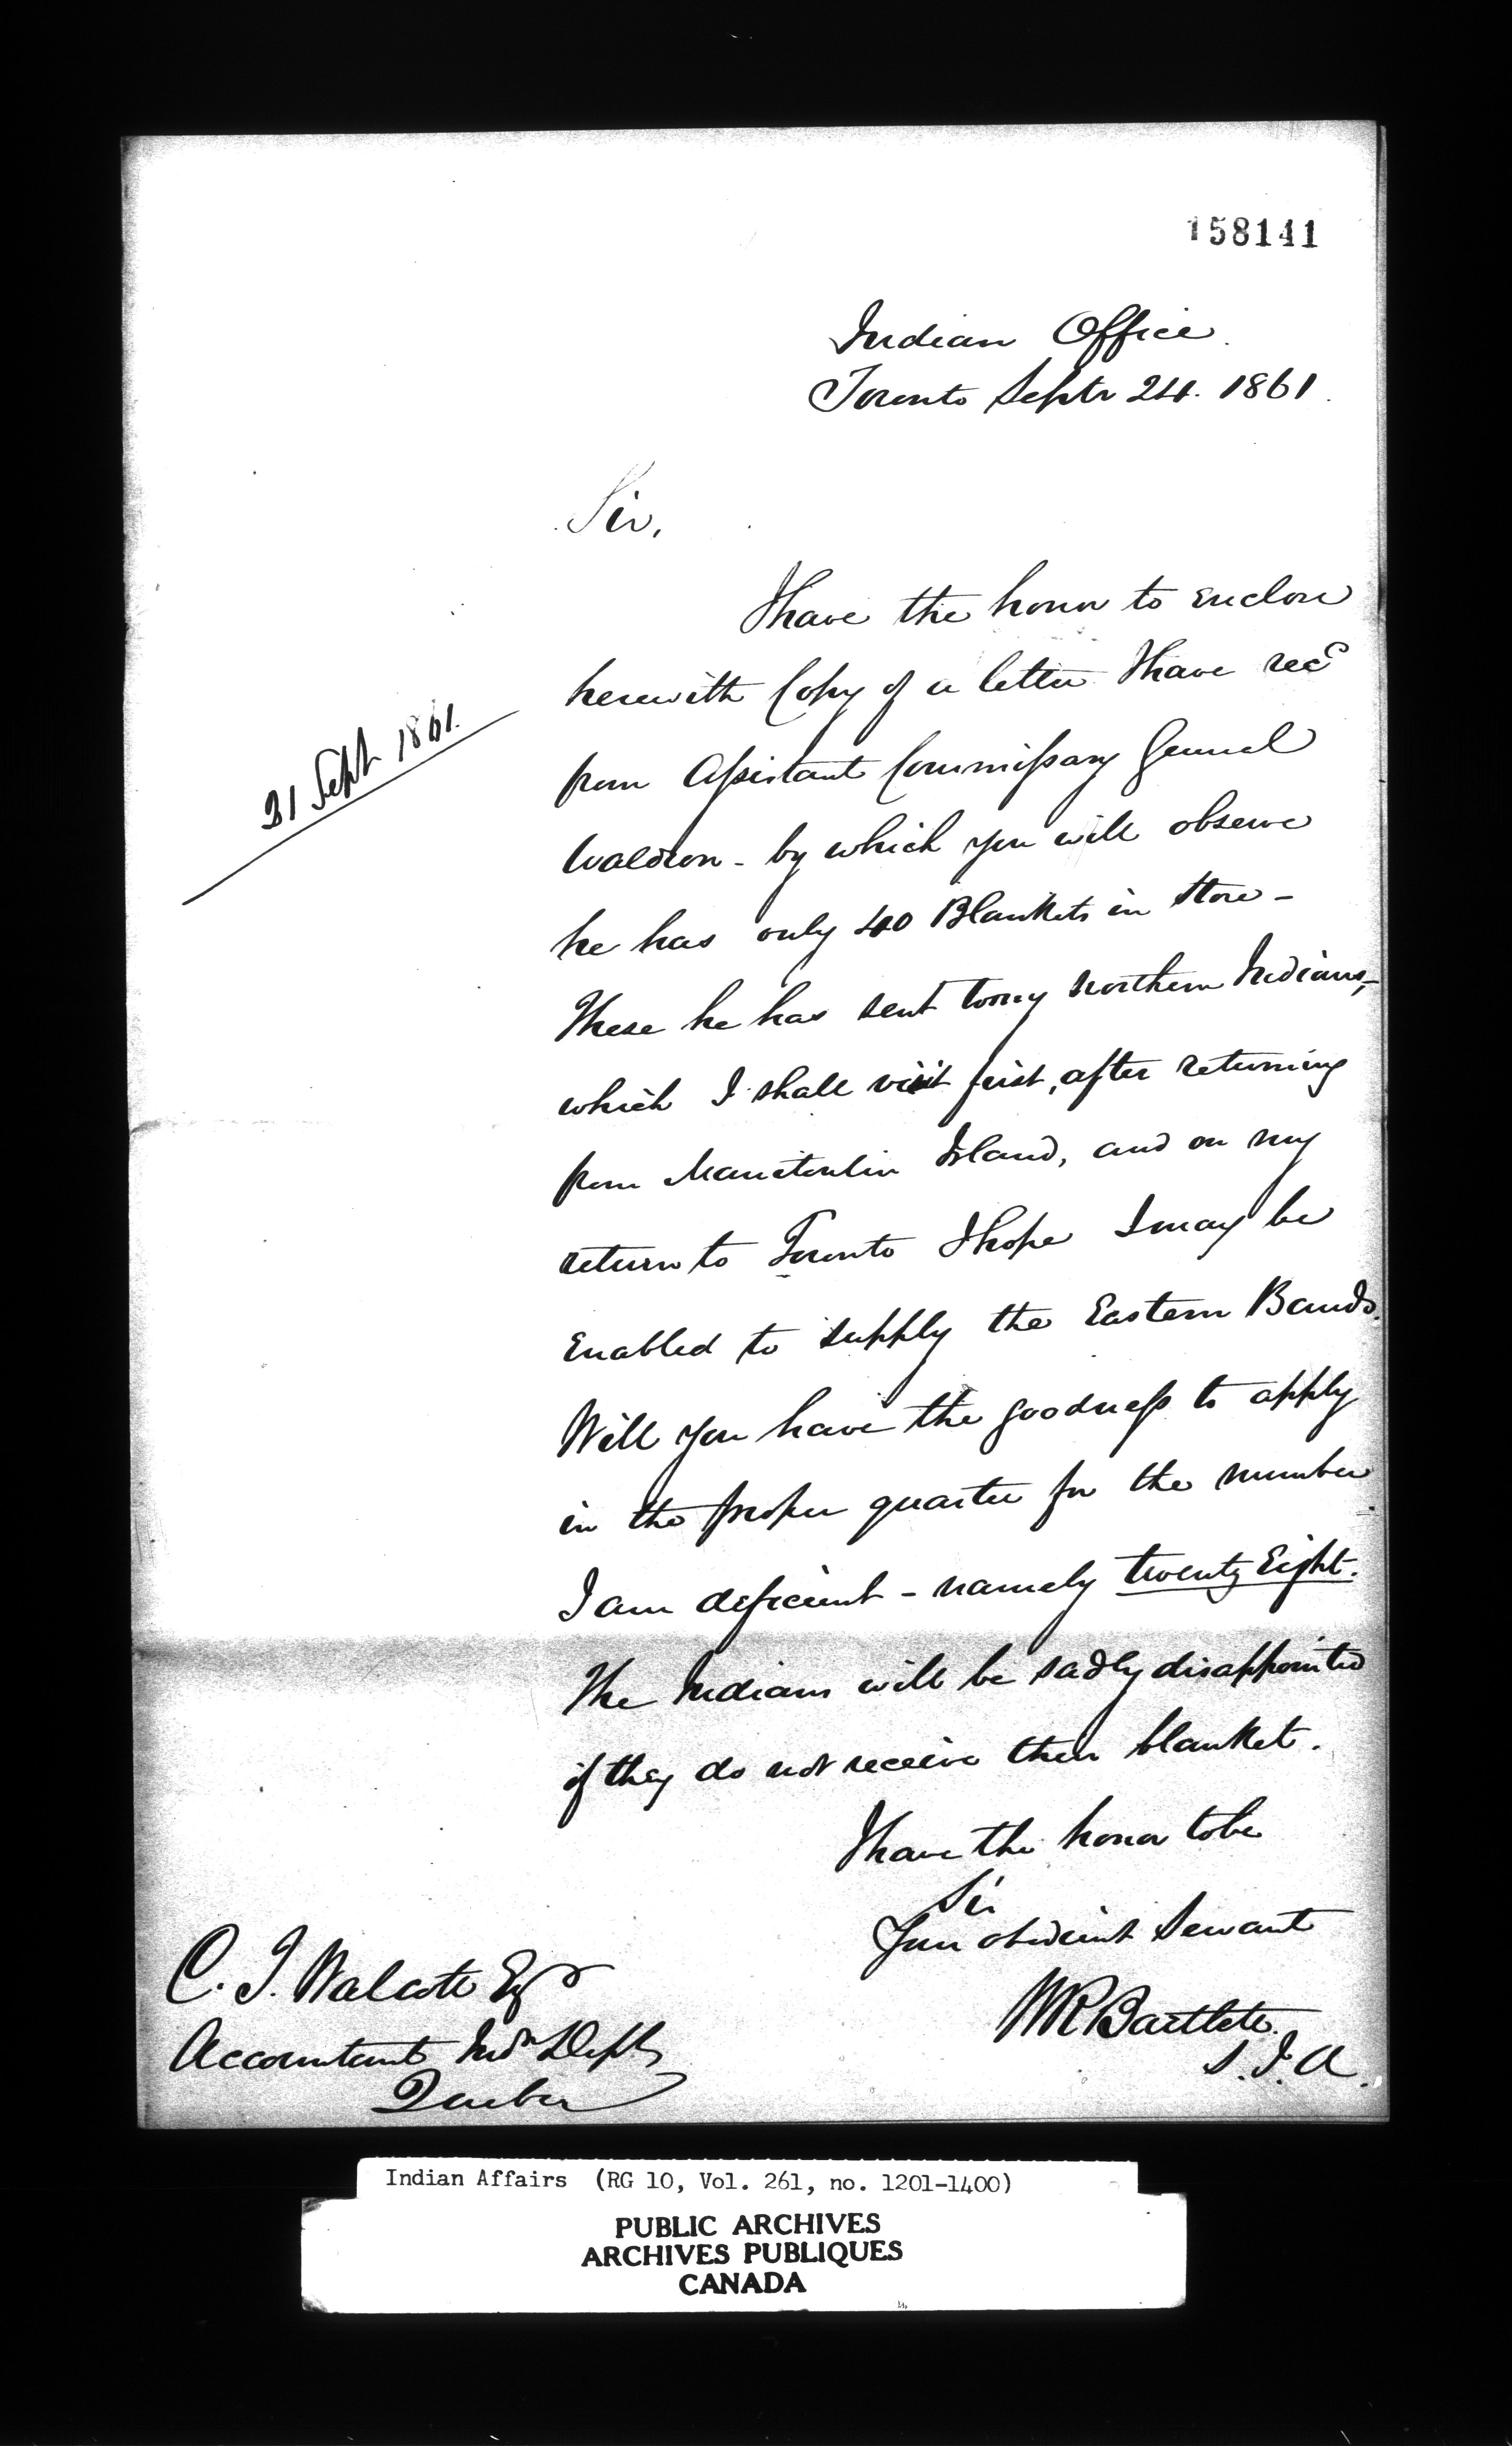 158141
Indian Office
Toronto Septr 24. 1861.
Sir,
I have the honor to enclose
herewith Copy of a letter I have recd
21 Sept 1861.
from Assistant Commissary General
Waldron - by which you will observe
he has only 40 Blankets in Store -
These he has sent to my Northern Indians,-
which I shall visit first, after returning
from Manitoulin Island, and on my
return to Toronto I hope I may be
Enabled to supply the Eastern Bands.
Will you have the goodness to apply
in the proper quarter for the number
I am deficient - namely twenty Eight.
The Indians will be sadly disappointed
if they do not receive their blanket.
I have the honor to be
Sir
Your obedient Servant
WR Bartlett
S.I.A.
C. T. Walcott Esqr
Accountant Indn Dept
Quebec
Indian Affairs (RG 10, Vol. 261, no. 1201-1400)
PUBLIC ARCHIVES
ARCHIVES PUBLIQUES
CANADA